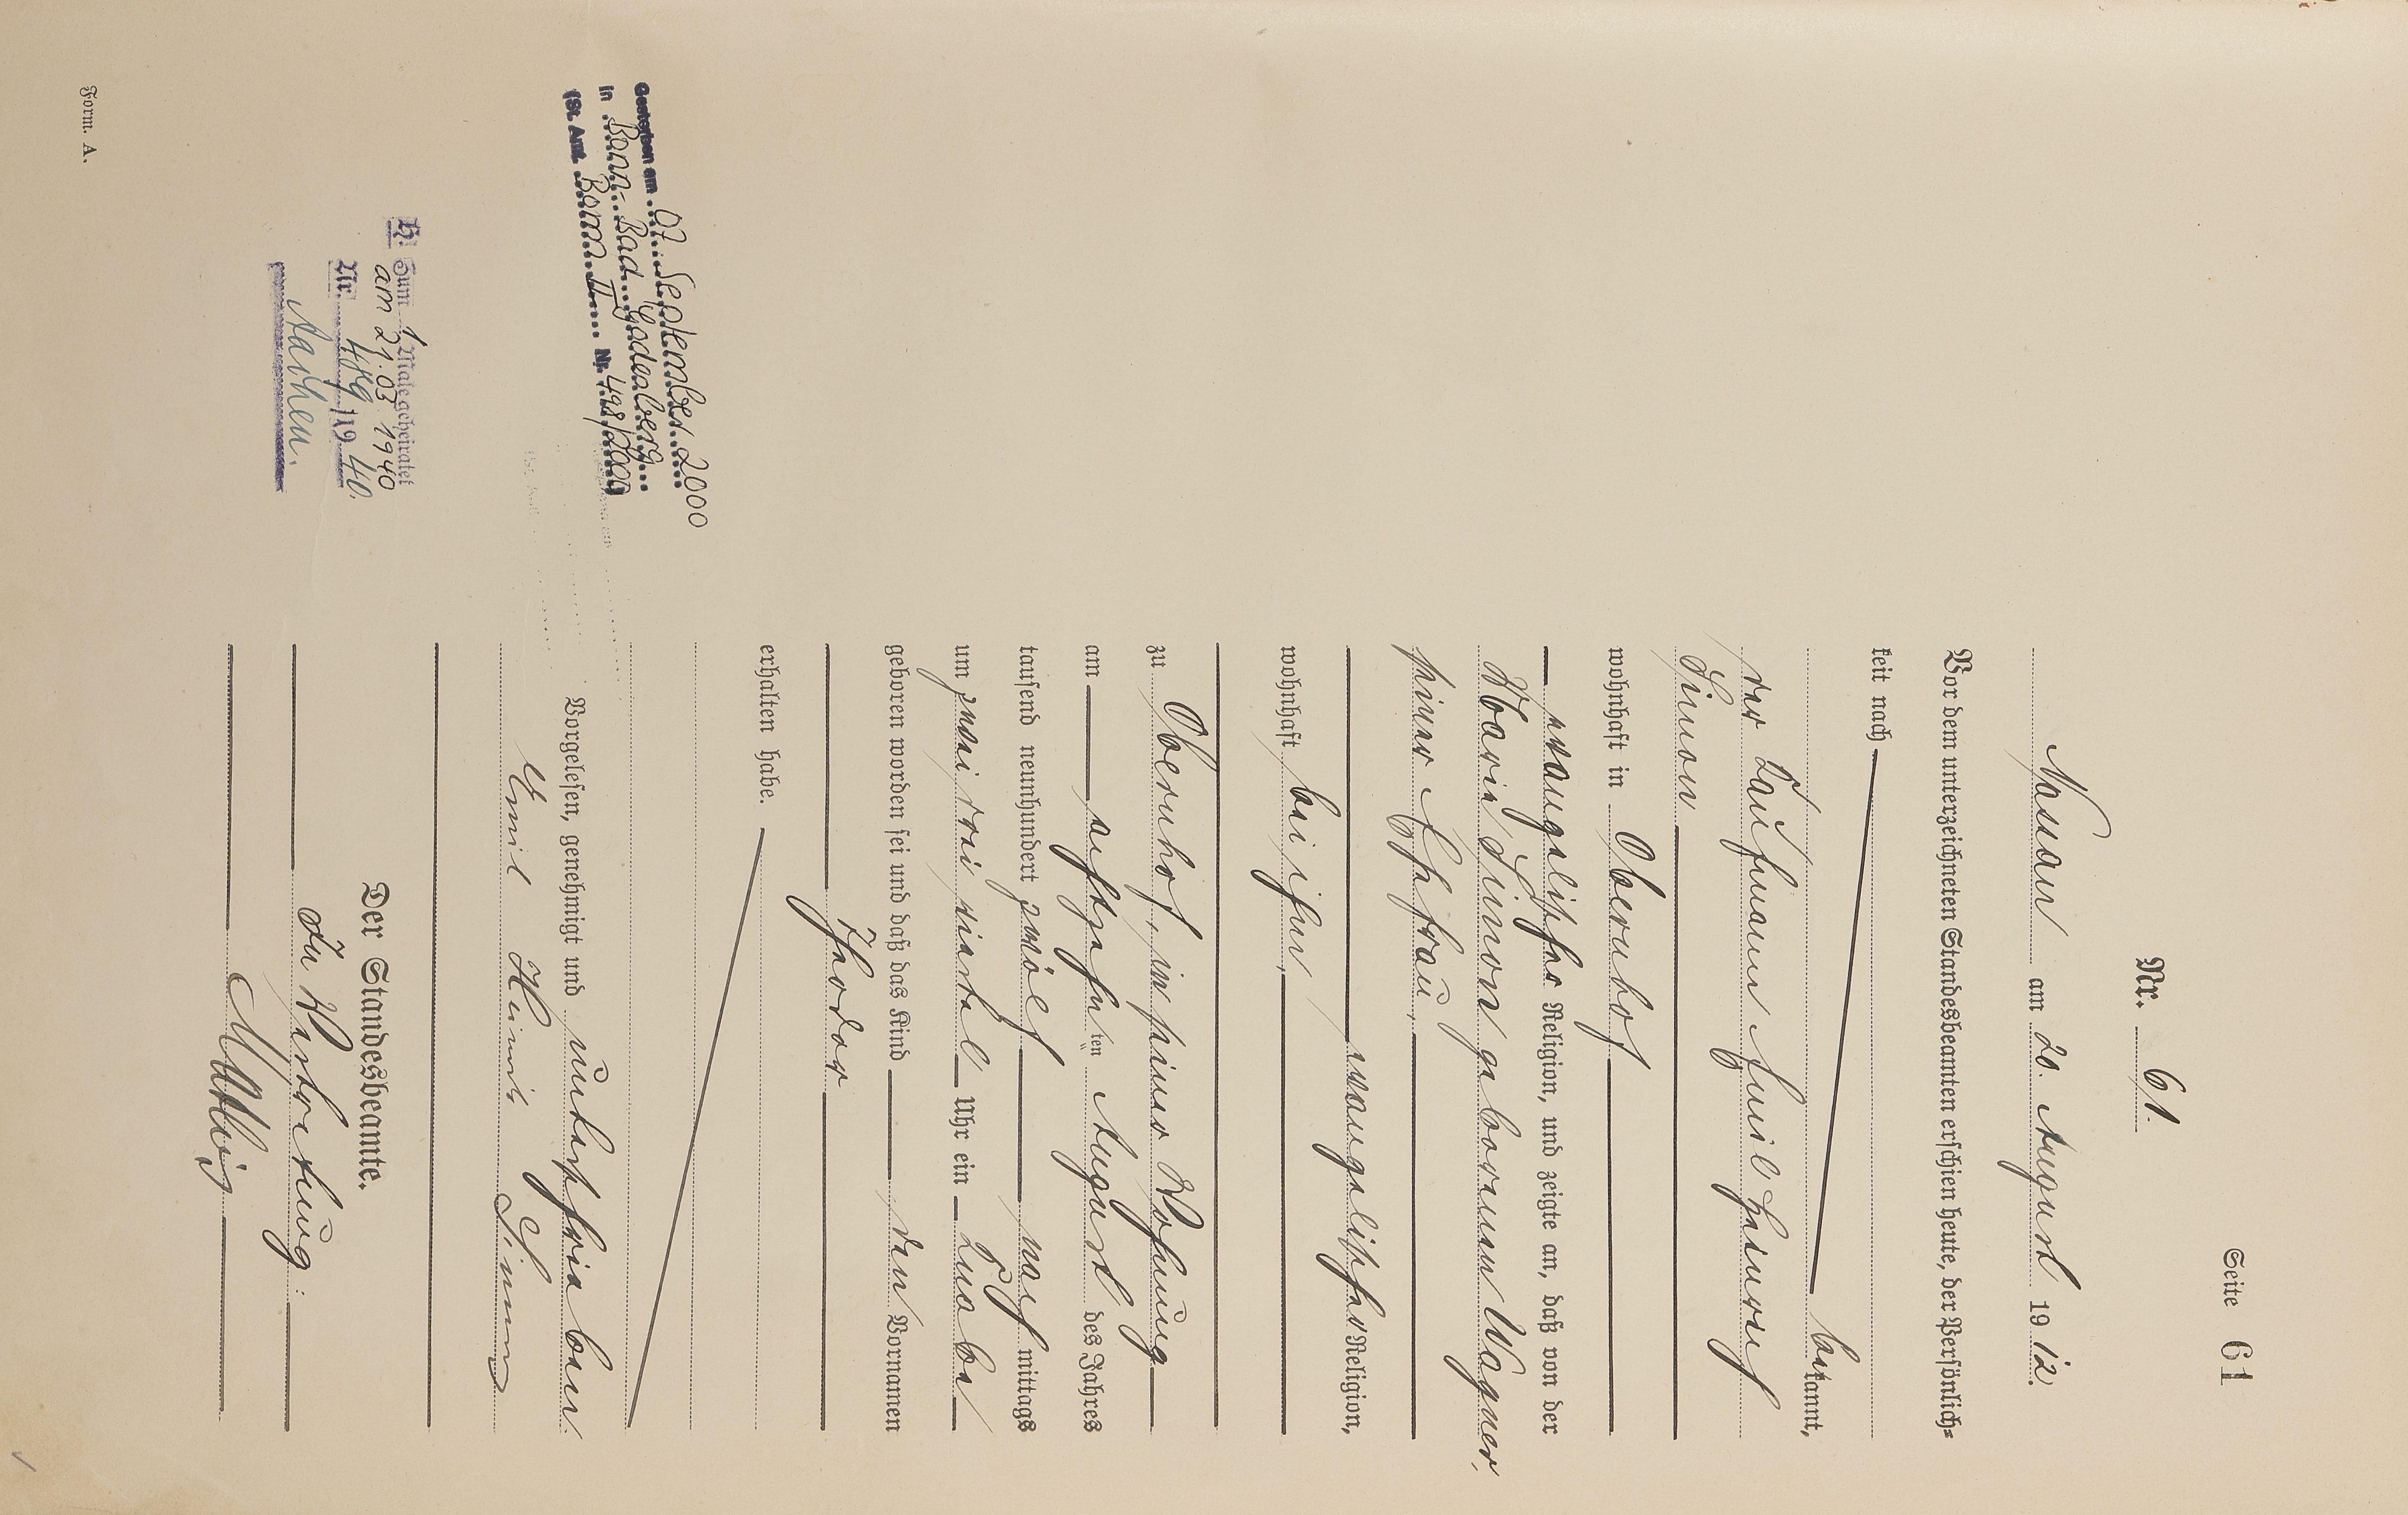 Seite 61
Nr. 61.
Nassau am 20. August 1912.
Vor dem unterzeichneten Standesbeamten erschien heute, der Persönlich-
keit nach
bekannt,
der Kaufmann Emil Heinrich
Simon
wohnhaft in Obernhof
evangelischer Religion, und zeigte an, daß von der
Marie Simon geborenen Wagner,
seiner Ehefrau,
evangelischer Religion,
wohnhaft bei ihm,
zu Obernhof, in seiner Wohnung
am achtzehnten August des Jahres
tausend neunhundert zwölf nachmittags
um zwei drei viertel Uhr ein Knabe
geboren worden sei und daß das Kind den Vornamen
Theodor
erhalten habe.
Vorgelesen, genehmigt und unterschrieben.
Emil Heinrich Simon
Der Standesbeamte.
In Vertretung:
Gestorben am 07. September 2000
in Bonn-Bad Godesberg
(St. Amt Bonn II Nr. 498/2000)
H Zum 1. Male geheiratet
am 21.03.1940
Nr. 489/1940.
Aachen.
Form. A.